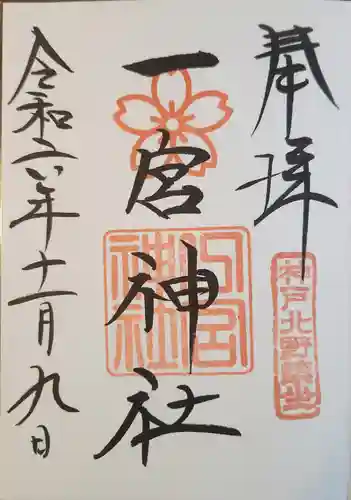 奉拝
一宮神社
令和二年十一月九日
一宮神社
神戸北野鎮坐